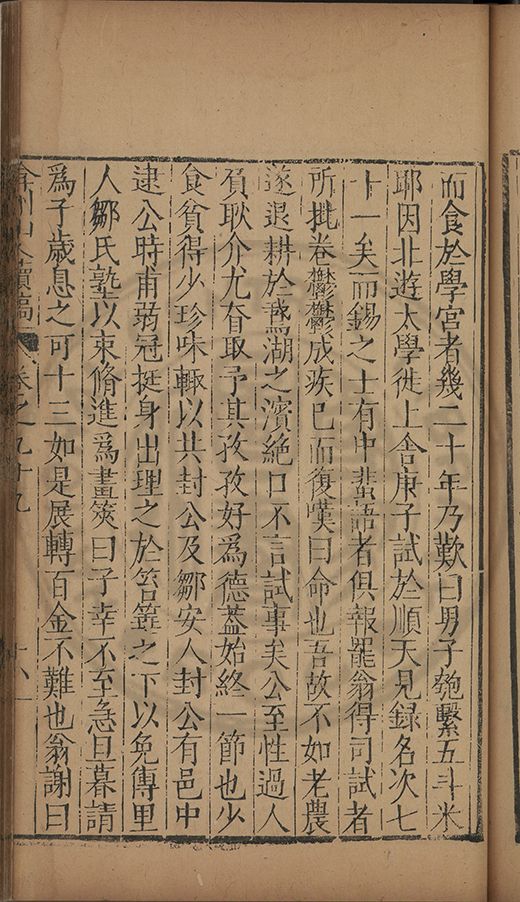 而食於學宮者幾二十年乃歎曰男子匏繫五斗米
耶因北遊太學徙上舍庚子試於順天見錄名次七
十一矣而錫之士有中蜚語者俱報罷翁得司試者
所批卷鬱鬱成疾已而復嘆曰命也吾故不如老農
遂退耕於鵞湖之濱絕口不言試事矣公至性過人
負耿介尤昚取予其孜孜好爲德葢始終一節也少
食貧得少珍味輙以共封公及鄒安人封公有邑中
逮公時甫弱冠挺身出理之於笞箠之下以免傳里
人鄒氏塾以束脩進爲畫筴曰子幸不至急旦暮請
爲子歲息之可十三如是展轉百金不難也翁謝曰
弇州山人續稿 卷之九十九 十八